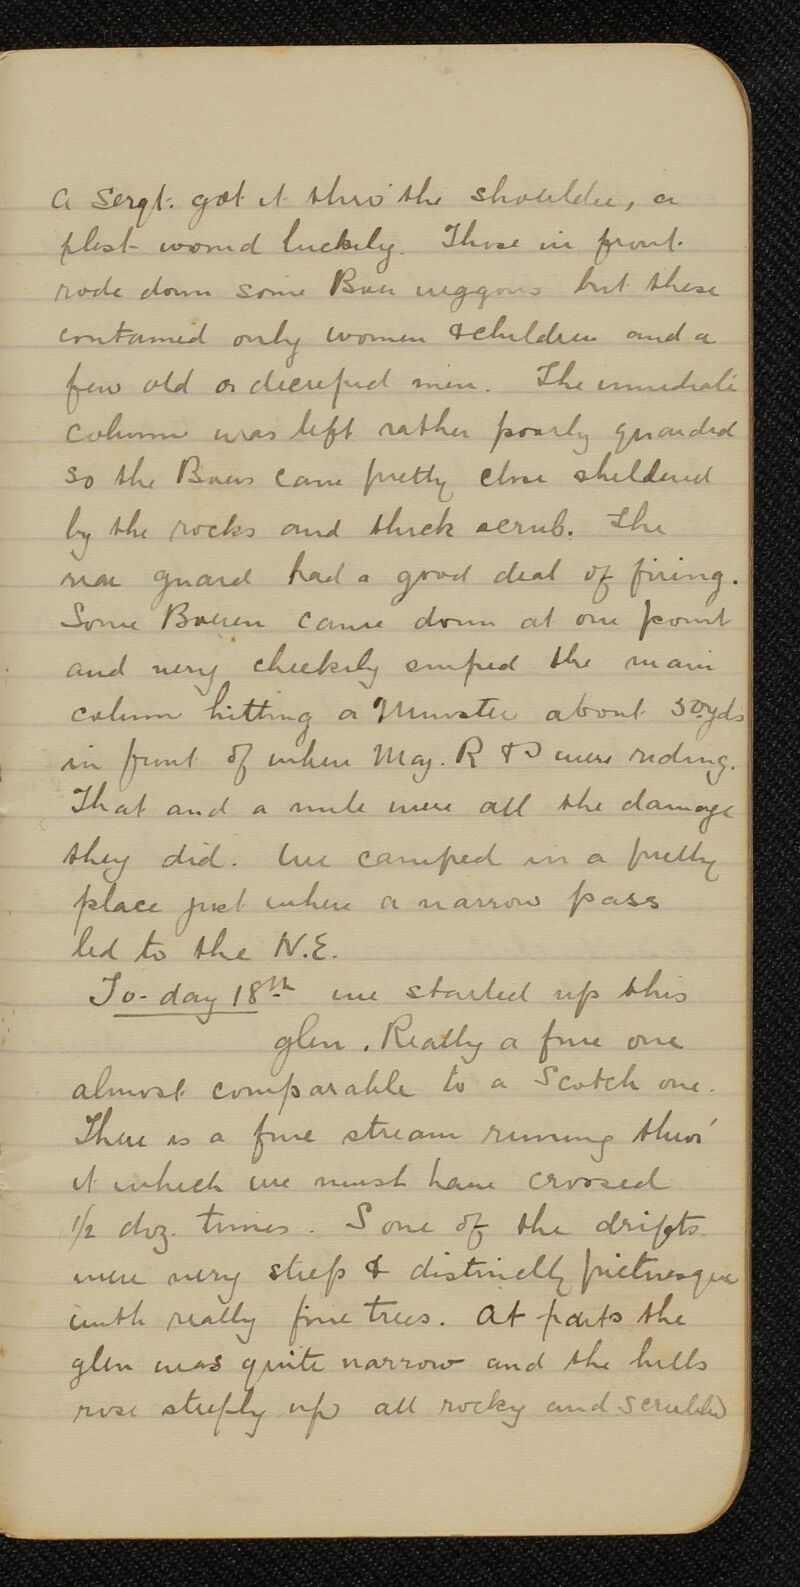 A Sergt. got it thro' the shoulder, a
flesh wound luckily. Those in front
rode down some Boer waggons but these
contained only women & children and a
few old or decrepid men. The immediate
column was left rather poorly guarded
so the Boers came pretty close sheltered
by the rocks and thick scrub. The
rear guard had a good deal of firing.
Some Boeren came down at one point
and very cheekily sniped the main
column hitting a Munster about 50 yds
in front of where Maj. R & I were riding.
That and a mule were all the damage
they did. We camped in a pretty
place just where a narrow pass
led to the N.E.
To-day 18th we started up this
glen. Really a fine one
almost comparable to a Scotch one.
There is a fine stream running thro'
it which we must have crossed
1/2 doz. times. Some of the drifts
were very steep & distinctly picturesque
with really fine trees. At parts the
glen was quite narrow and the hills
rose steeply up all rocky and